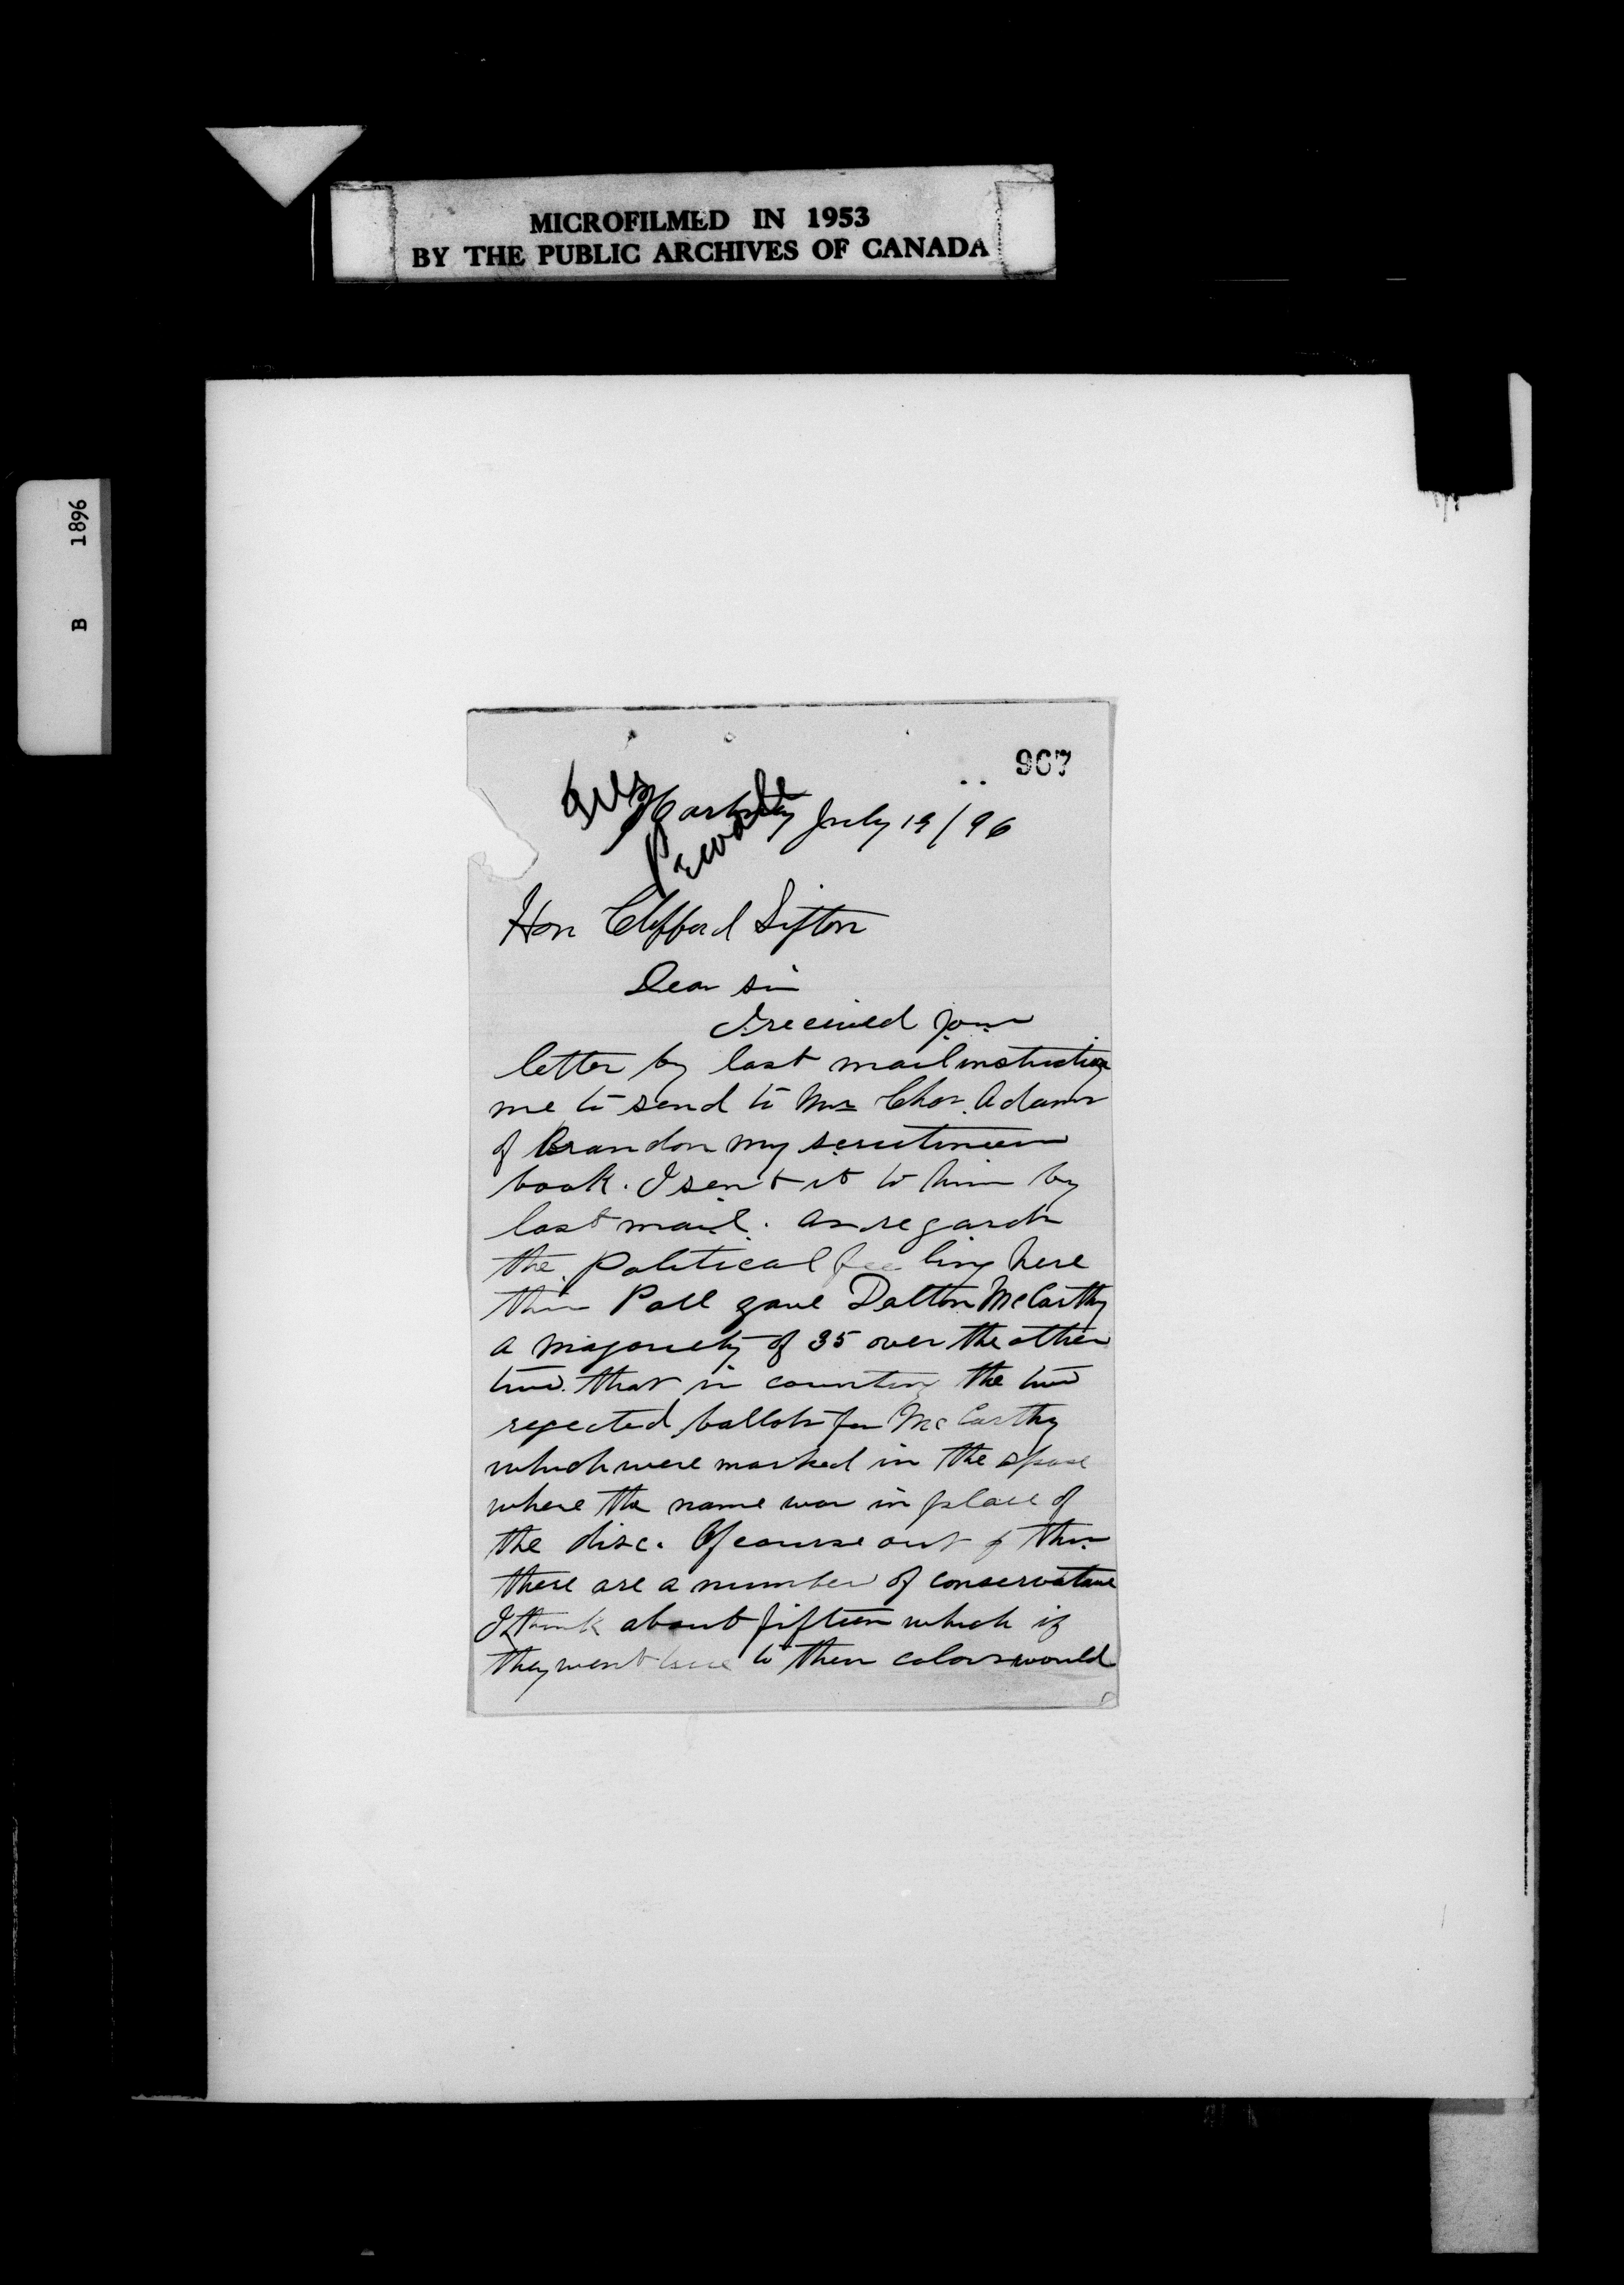 MICROFILMED IN 1953
BY THE PUBLIC ARCHIVES OF CANADA
B 1896
967
Hartney July 19/96
Hon Clifford Sifton
Dear Sir
I received your
letter by last mail instructing
me to send to Mr Chas. Adams
of Brandon my scrutineers
book. I sent it to him by
last mail. As regards
the Political feeling here
this Poll gave Dalton McCarthy
a majoriety of 35 over the other
two. that is counting the two
rejected ballots for McCarthy
which were marked in the space
where the name was in place of
the disc. Of course out of this
there are a number of conservative
I think about fifteen which if
they went true to their colors would